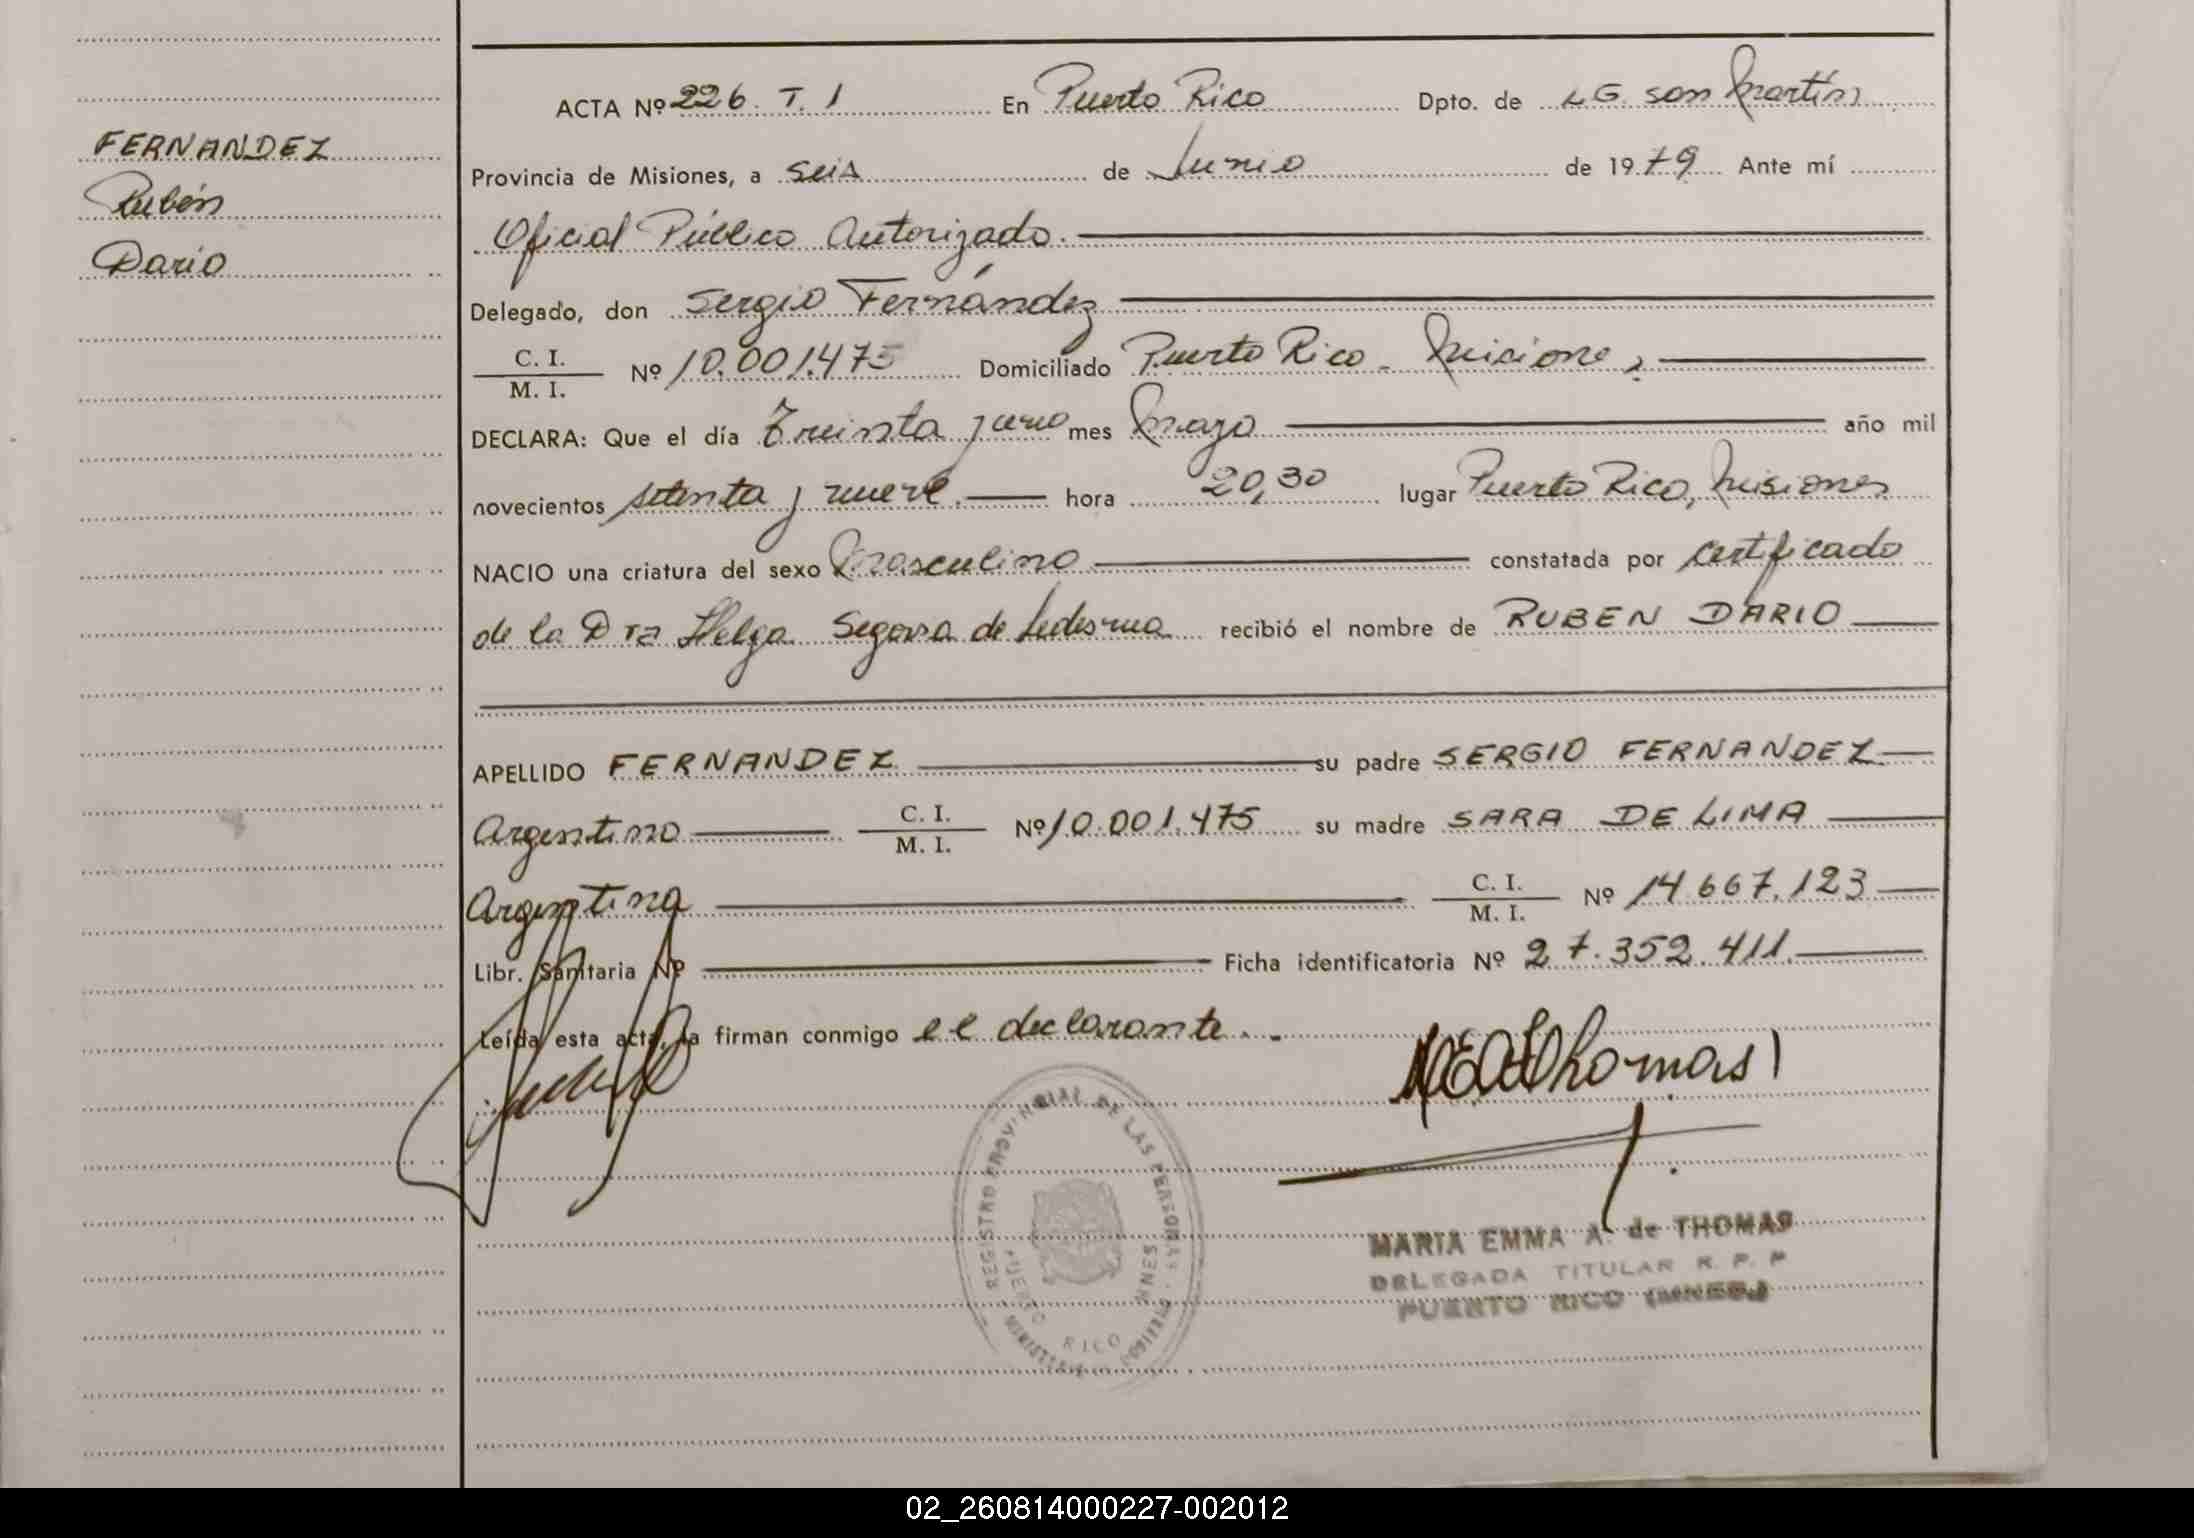 FERNANDEZ
Rubén
Dario
ACTA Nº 226. T. 1 En Puerto Rico Dpto. de L G. San Martín
Provincia de Misiones, a seis de Junio de 1979 Ante mí
Oficial Público Autorizado.
Delegado, don Sergio Fernández
C. I.
M. I. Nº 10.001.475 Domiciliado Puerto Rico - Misiones
DECLARA: Que el día Treinta y uno mes Mayo año mil
novecientos setenta y nueve. hora 20,30 lugar Puerto Rico, Misiones
NACIO una criatura del sexo Masculino constatada por certificado
de la Dra Helga Segovia de Ledesma recibió el nombre de RUBEN DARIO
APELLIDO FERNANDEZ su padre SERGIO FERNANDEZ
Argentino C. I.
M. I. Nº 10.001.475 su madre SARA DE LIMA
Argentina C. I.
M. I. Nº 14.667.123
Libr. Sanitaria Nº Ficha identificatoria Nº 27.352.411.
Leída esta acta, la firman conmigo el declarante.
REGISTRO PROVINCIAL DE LAS PERSONAS
PUERTO RICO MNES
MARIA EMMA A. de THOMAS
DELEGADA TITULAR R. P. P
PUERTO RICO (MNES.)
02_260814000227-002012